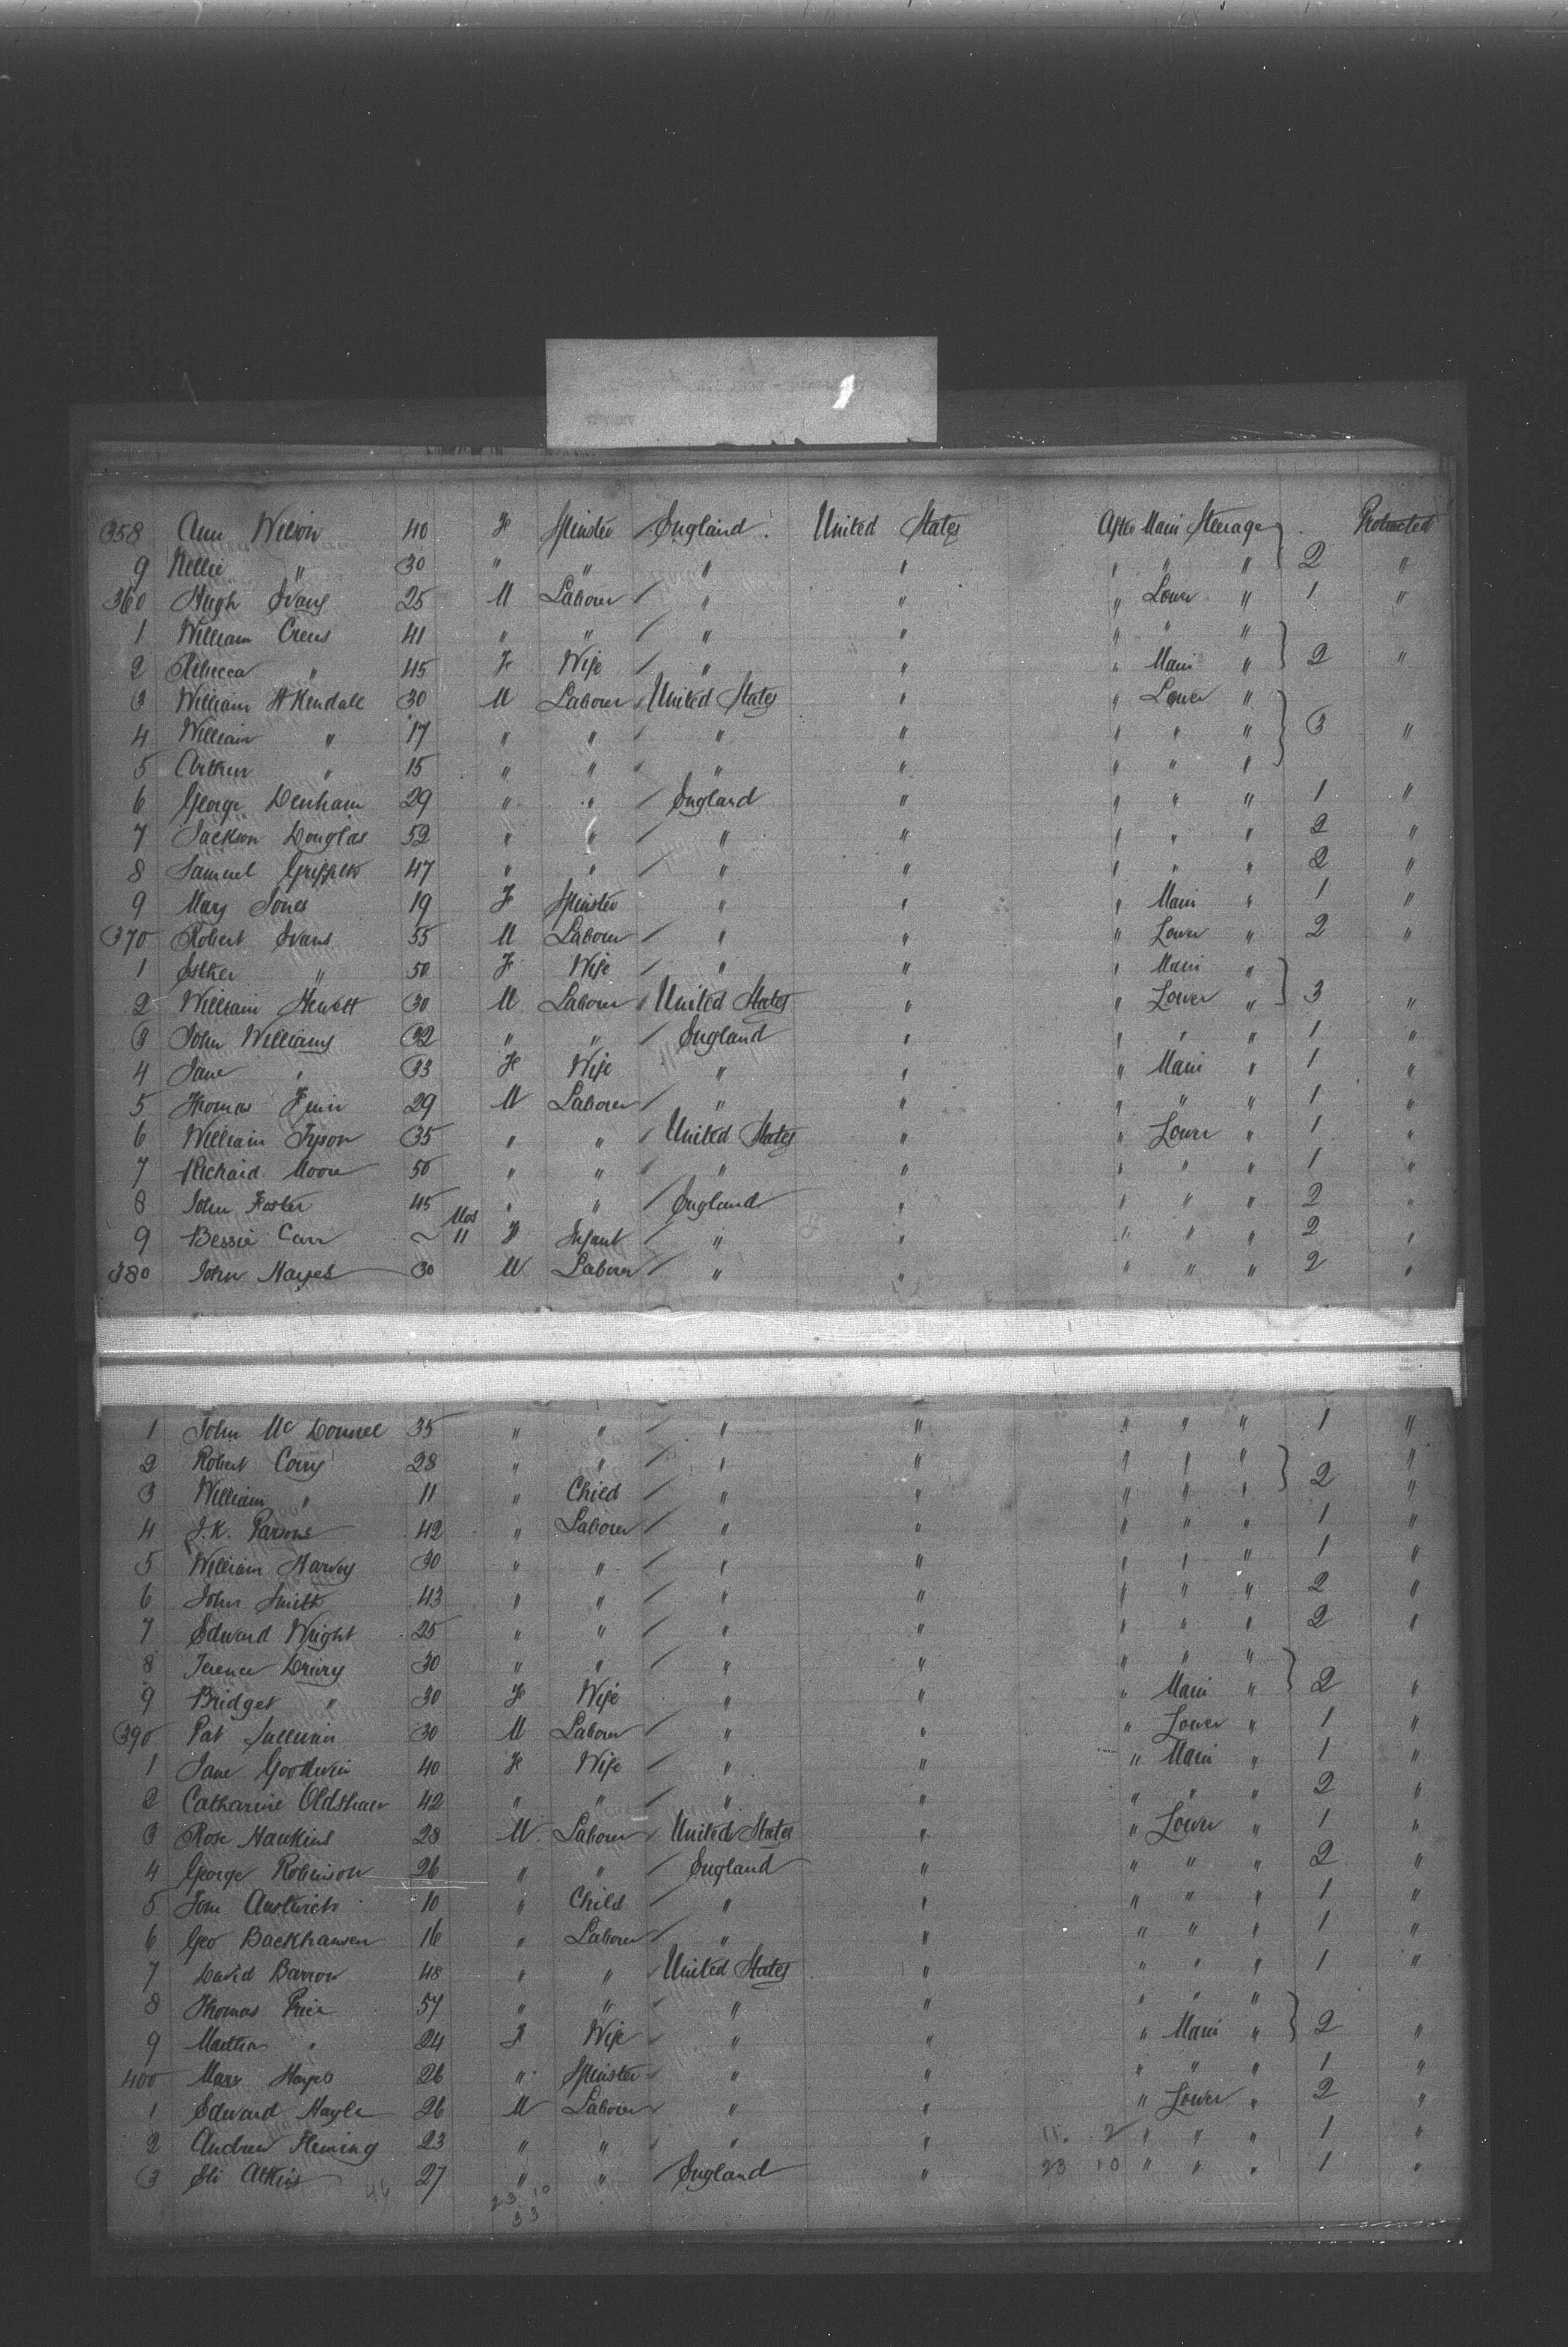 358 Ann Wilson 40 F Spinster / England United States After Main Steerage } Protracted
9 Nellie " 30 " " " " " " " 2 "
360 Hugh Evans 25 M Laborer / " " " Lower " 1 "
1 William Crews 41 " " / " " " " " }
2 Rebecca " 45 F Wife / " " " Main " 2 "
3 William H Kendall 30 M Laborer / United States " " Lower " }
4 William " 17 " " / " " " " " 3 "
5 Arthur " 15 " " / " " " " "
6 George Denham 29 " " / England " " " " 1 "
7 Jackson Douglas 52 " " / " " " " " 2 "
8 Samuel 47 " " / " " " " " 2 "
9 Mary Jones 19 F Spinster " " " Main " 1 "
370 Robert Evans 55 M Laborer / " " " Lower " 2 "
1 Esther " 50 F Wife / " " " Main " }
2 William Hewett 30 M Laborer / United States " " Lower " 3 "
3 John Williams 32 " " / England " " " " 1 "
4 Jane " 33 F Wife " " " Main " 1 "
5 Thomas 29 M Laborer / " " " " " 1 "
6 William Tyson 35 " " / United States " " Lower " 1 "
7 Richard Moore 50 " " / " " " " " 1 "
8 John Foster 45 " " / England " " " " 2 "
9 Bessie Carr ~ Mos 11 F Infant / " " " " " 2 "
380 John Hayes 30 M Laborer / " " " " " 2 "
1 John McDonnel 35 " " / " " " " " 1 "
2 Robert Corry 28 " " / " " " " " } "
3 William " 11 " Child / " " " " " 2 "
4 J.K. Parsons 42 " Laborer / " " " " " 1 "
5 William Harvey 30 " " / " " " " " 1 "
6 John Smith 43 " " / " " " " " 2 "
7 Edward Wright 25 " " / " " " " " 2 "
8 Terence Drury 30 " " / " " " " " }
9 Bridget " 30 F Wife " " " Main " 2 "
390 Pat Sullivan 30 M Laborer / " " " Lower " 1 "
1 Jane Goodwin 40 F Wife / " " " Main " 1 "
2 Catharine Oldshaw 42 " " / " " " " " 2 "
3 Rose Hawkins 28 M Laborer / United States " " Lower " 1 "
4 George Robinson 26 " " / England " " " " 2 "
5 Tom Austwick 10 " Child / " " " " " 1 "
6 Geo Backhausen 16 " Laborer / " " " " " 1 "
7 David Barrow 48 " " / United States " " " " 1 "
8 Thomas Price 57 " " / " " " " " }
9 Martha " 24 F Wife / " " " Main " 2 "
400 Mary Hayes 26 " Spinster / " " " " " 1 "
1 Edward Hayle 26 M Laborer / " " " Lower " 2 "
2 Andrew Fleming 23 " " / " " 11. 2 " " " 1 "
3 Eli Atkins 46 27 " " / England " 23 10 " " " 1 "
23 10
33